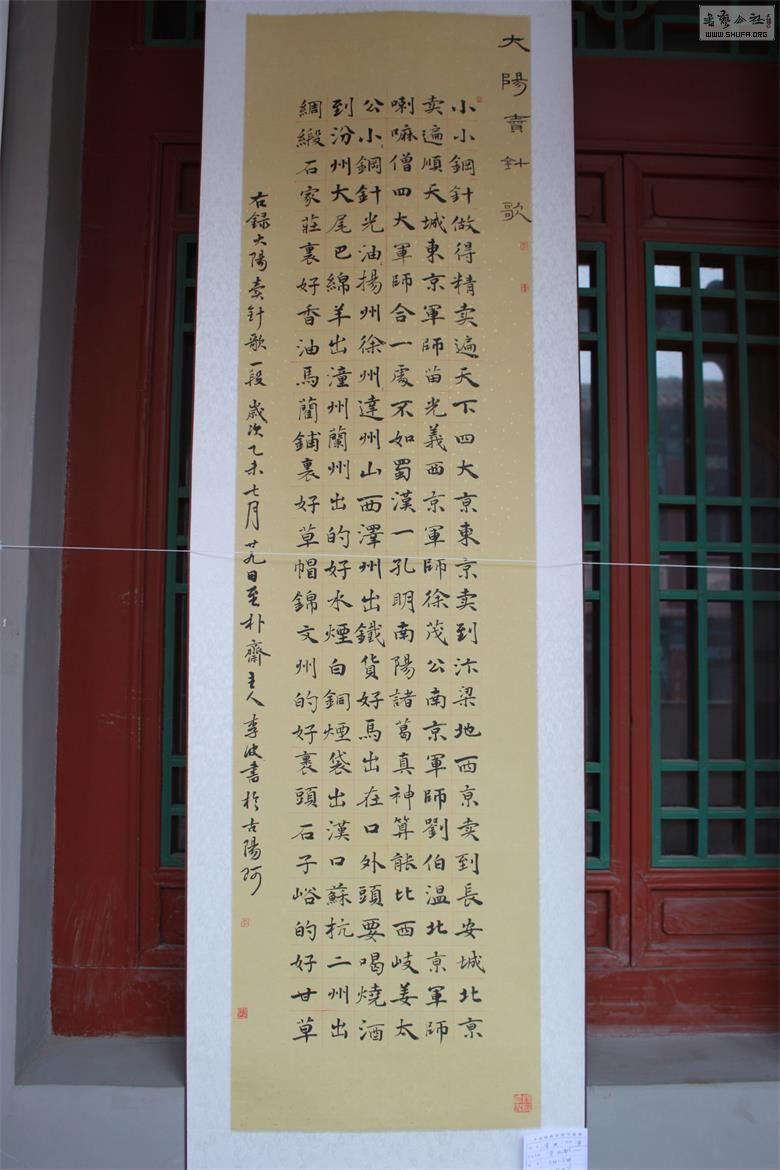 大陽賣針歌
小小鋼針做得精卖遍天下四大京東京卖到汴梁地西京卖到長安城北京
卖遍順天城東京軍師苗光義西京軍師徐茂公南京軍師劉伯温北京軍師
喇嘛僧四大軍師合一處不如蜀漢一孔明南陽諸葛真神算能比西岐姜太
公小鋼針光油揚州徐州達州山西澤州出鐵貨好馬出在口外頭要喝燒酒
到汾州大尾巴綿羊出潼州蘭州出的好水煙白銅煙袋出漢口蘇杭二州出
綢緞石家莊裏好香油馬藺鋪裏好草帽錦文州的好裹頭石子峪的好甘草
右録大陽賣針歌一段歲次乙未七月廿九日至朴齋主人李波書於古陽阿
WWW.SHUFA.ORG